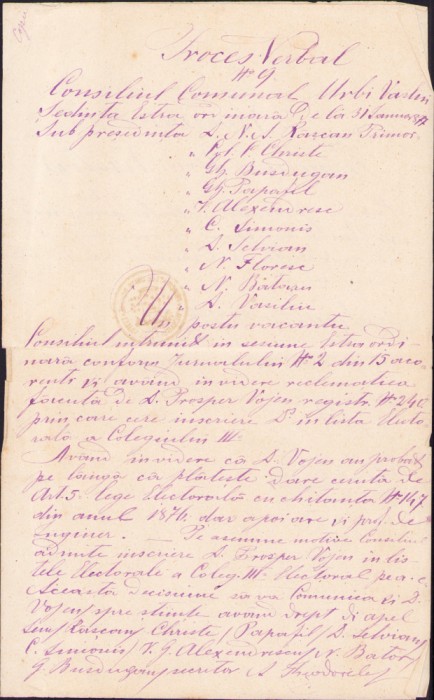 Copie
Proces Verbal
№ 9
Consiliul Comunal Urbi Vaslui
Sedinta Estra ordinara De la 31 Januar 87
Sub presidentia D. N. A. Rascan Primar
" V. Christe
" Gh. Busdugan
" Gh. Papafil
" V. Alexendresc
" C. Simonis
" D. Selvian
" N. Floresc
" N. Batoran
" D. Vasiliu
Un postu vacantu
Consiliul intrunit in sesiune Estraordi
nară conform Jurnalului № 2 din 15 aco
rentǐ și avand in videre reclamatica
facută de D. Prosper Vojen registr. № 240
prin care cere inscriere D in lista Electo
rală a Colegiului III.
Avand in videre că D. Vojen au probat
pe langă că plăteste dare ceruta de
Art 5. lege Electorală cu chitanta № 147
din anul 1876. dar apoi are și prof. de
Enginer. — Pe asemine motive Consiliul
admite inscriere D. Prosper Vojen in lis
tele Electorale a Coleg. III Electoral pe a. c.
Această decisiune sa va Comunica și D.
Vojen spre stiinta avand drept di apel
semn Rascan / Christe / Papafil / D. Selvian /
C. Simonis / V. G. Alexendresc / N. Bator
G. Busdugan secretar A. Theodorescu